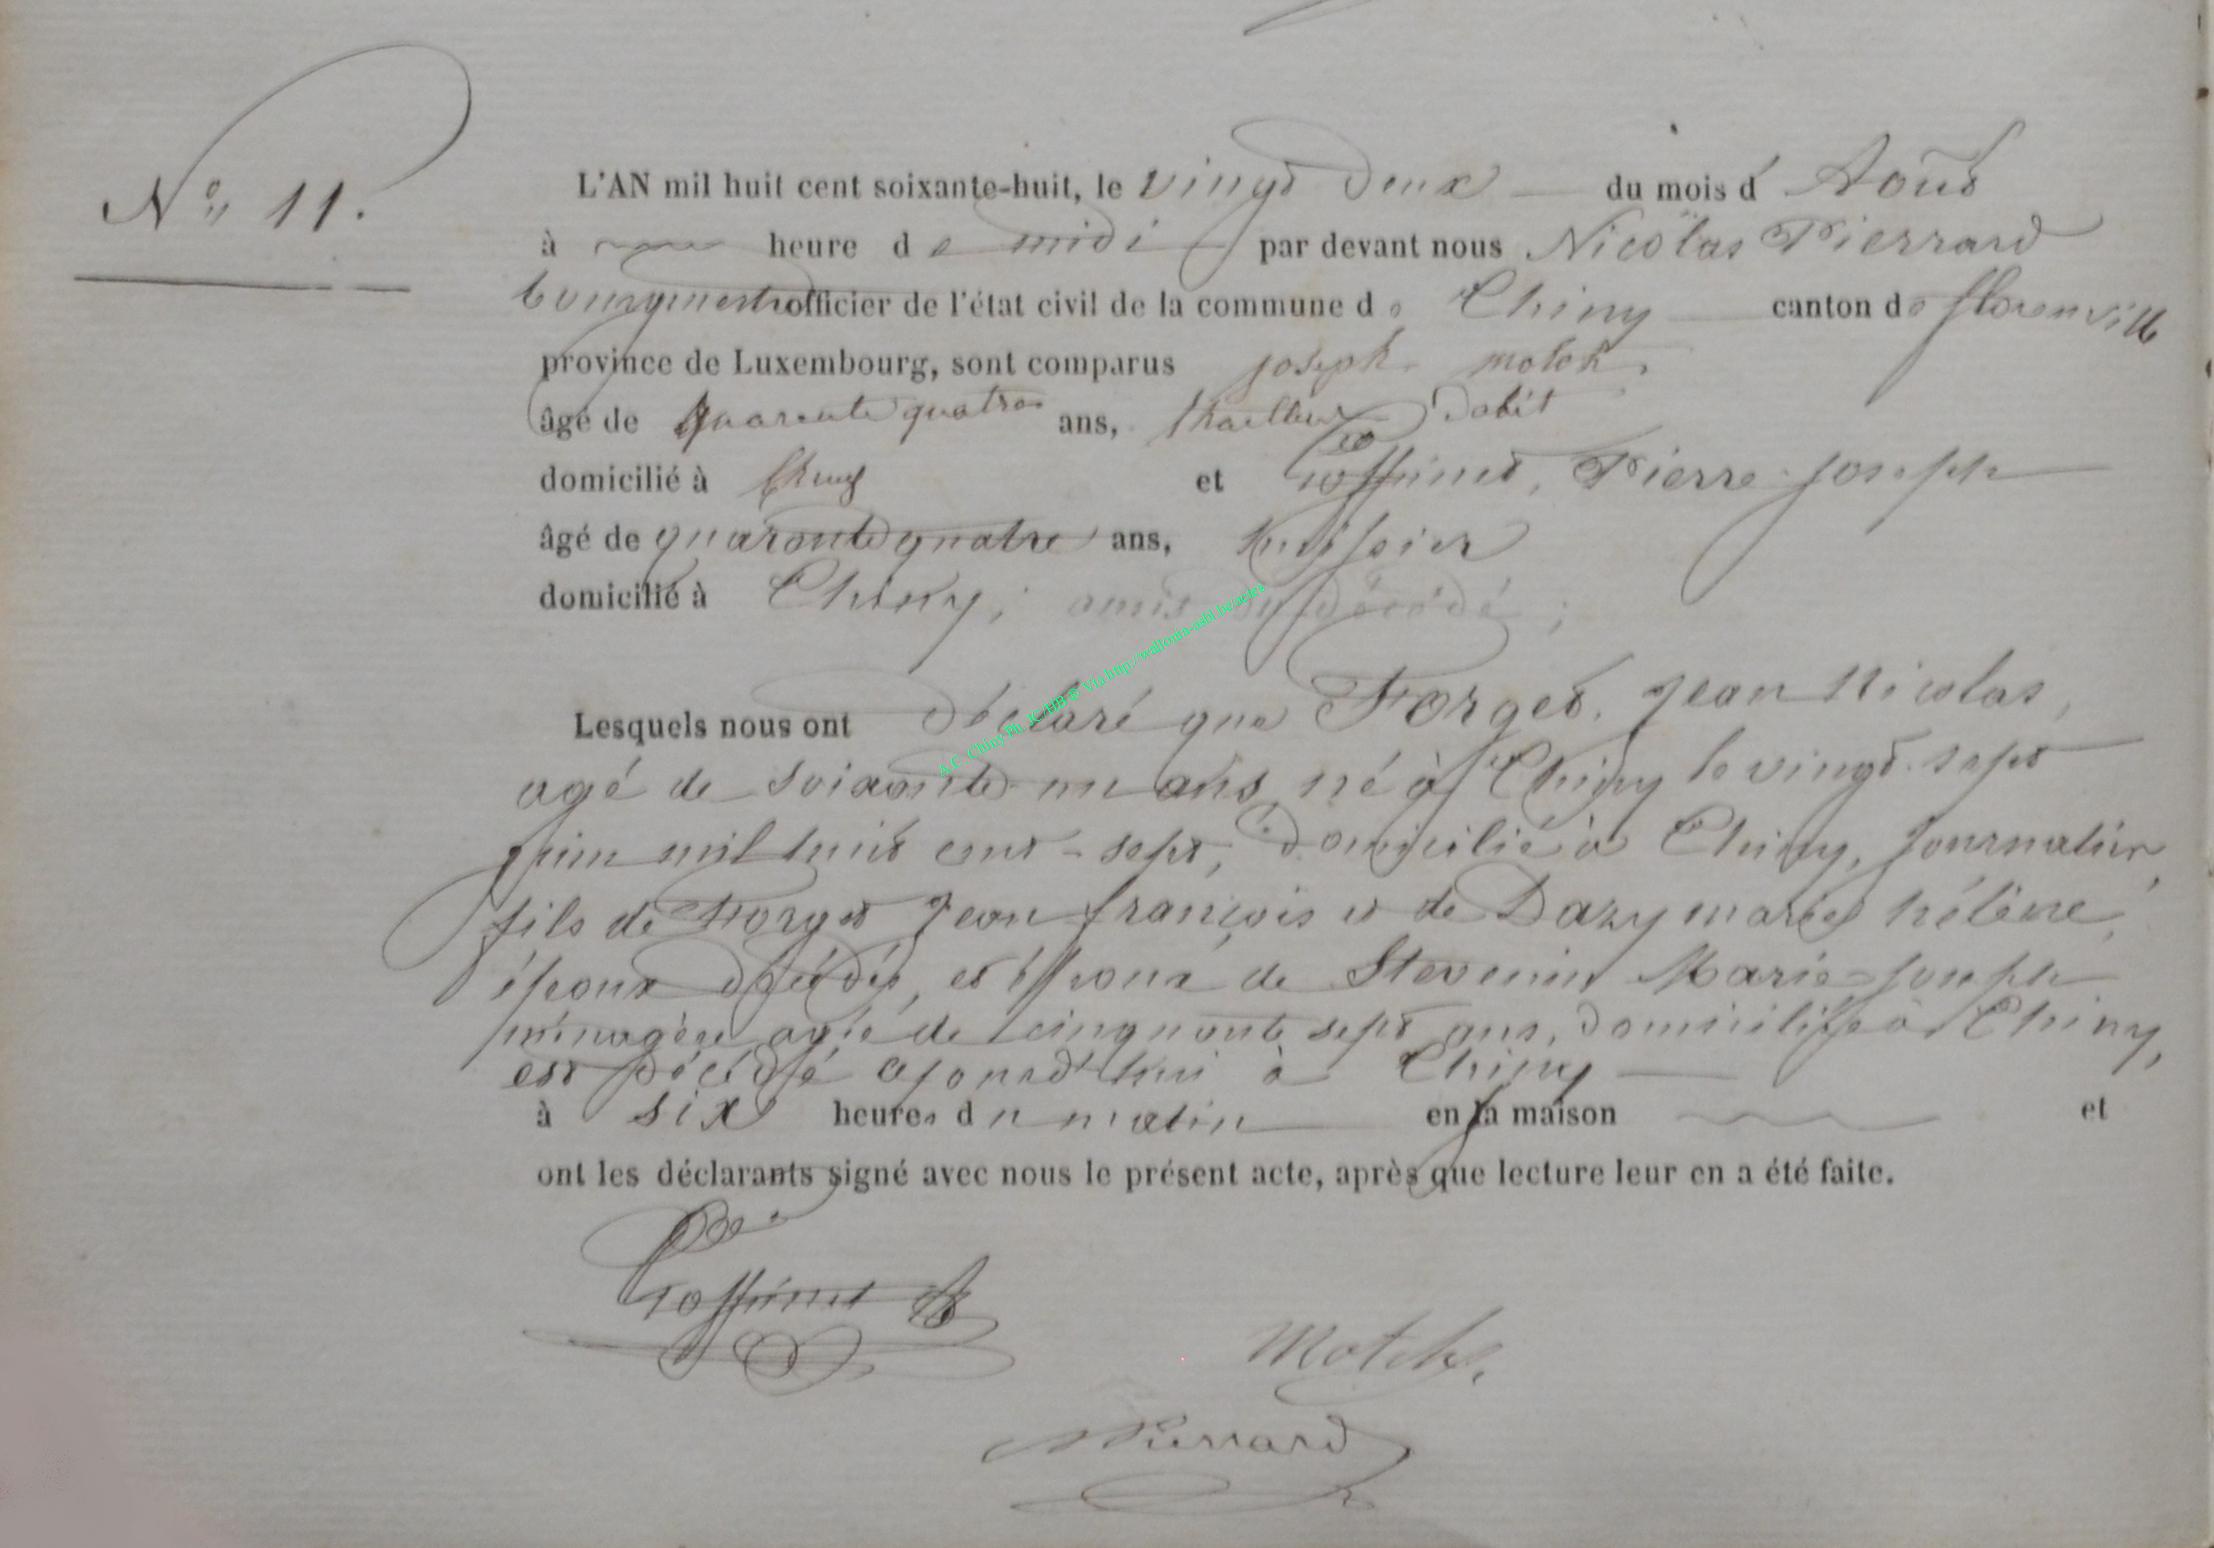 N° 11.
L'AN mil huit cent soixante-huit, le vingt deux du mois d' Août
à heure de midi par devant nous Nicolas Pierrard
bourgmestre officier de l'état civil de la commune de Chiny canton de florenville
province de Luxembourg, sont comparus joseph motch
âgé de quarente quatre ans, thailleur dabit
domicilié à Chiny et Goffinet, Pierre joseph
âgé de quarante quatre ans, huissier
domicilié à Chiny; amis du décédé;
Lesquels nous ont déclaré que Forget. Jean Nicolas,
agé de soixante un ans né à Chiny le vingt-sept
juin mil huit cent-sept, domicilié à Chiny, journalier,
fils de Forget Jean françois et de Dazy marie hélène,
époux décédés, et époux de Stevenin Marie-joseph
ménagère agée de cinquante sept ans, domiciliée à Chiny,
est décédé ajourd'hui à Chiny
à six heures du matin en la maison et
ont les déclarants signé avec nous le présent acte, après que lecture leur en a été faite.
Goffinet
Motch.
Pierrard